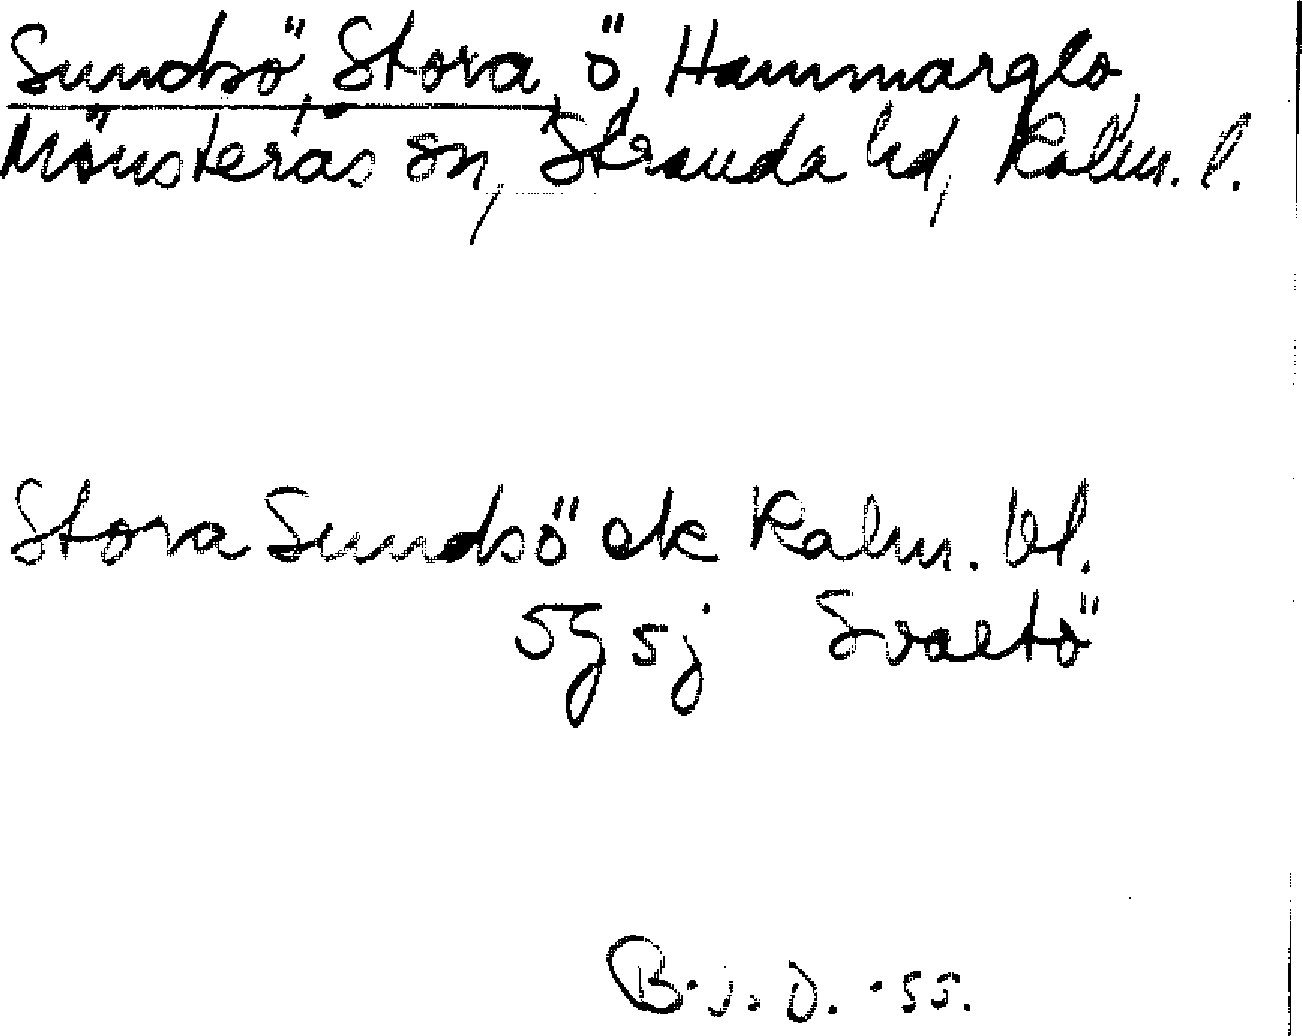 Sundsö, Stora, ö, Hammarglo,
Mönsterås sn, Stranda hd, Kalm. l.
Stora Sundsö ek Kalm. bl.
5g 5j Svartö
B.j.D. -55.